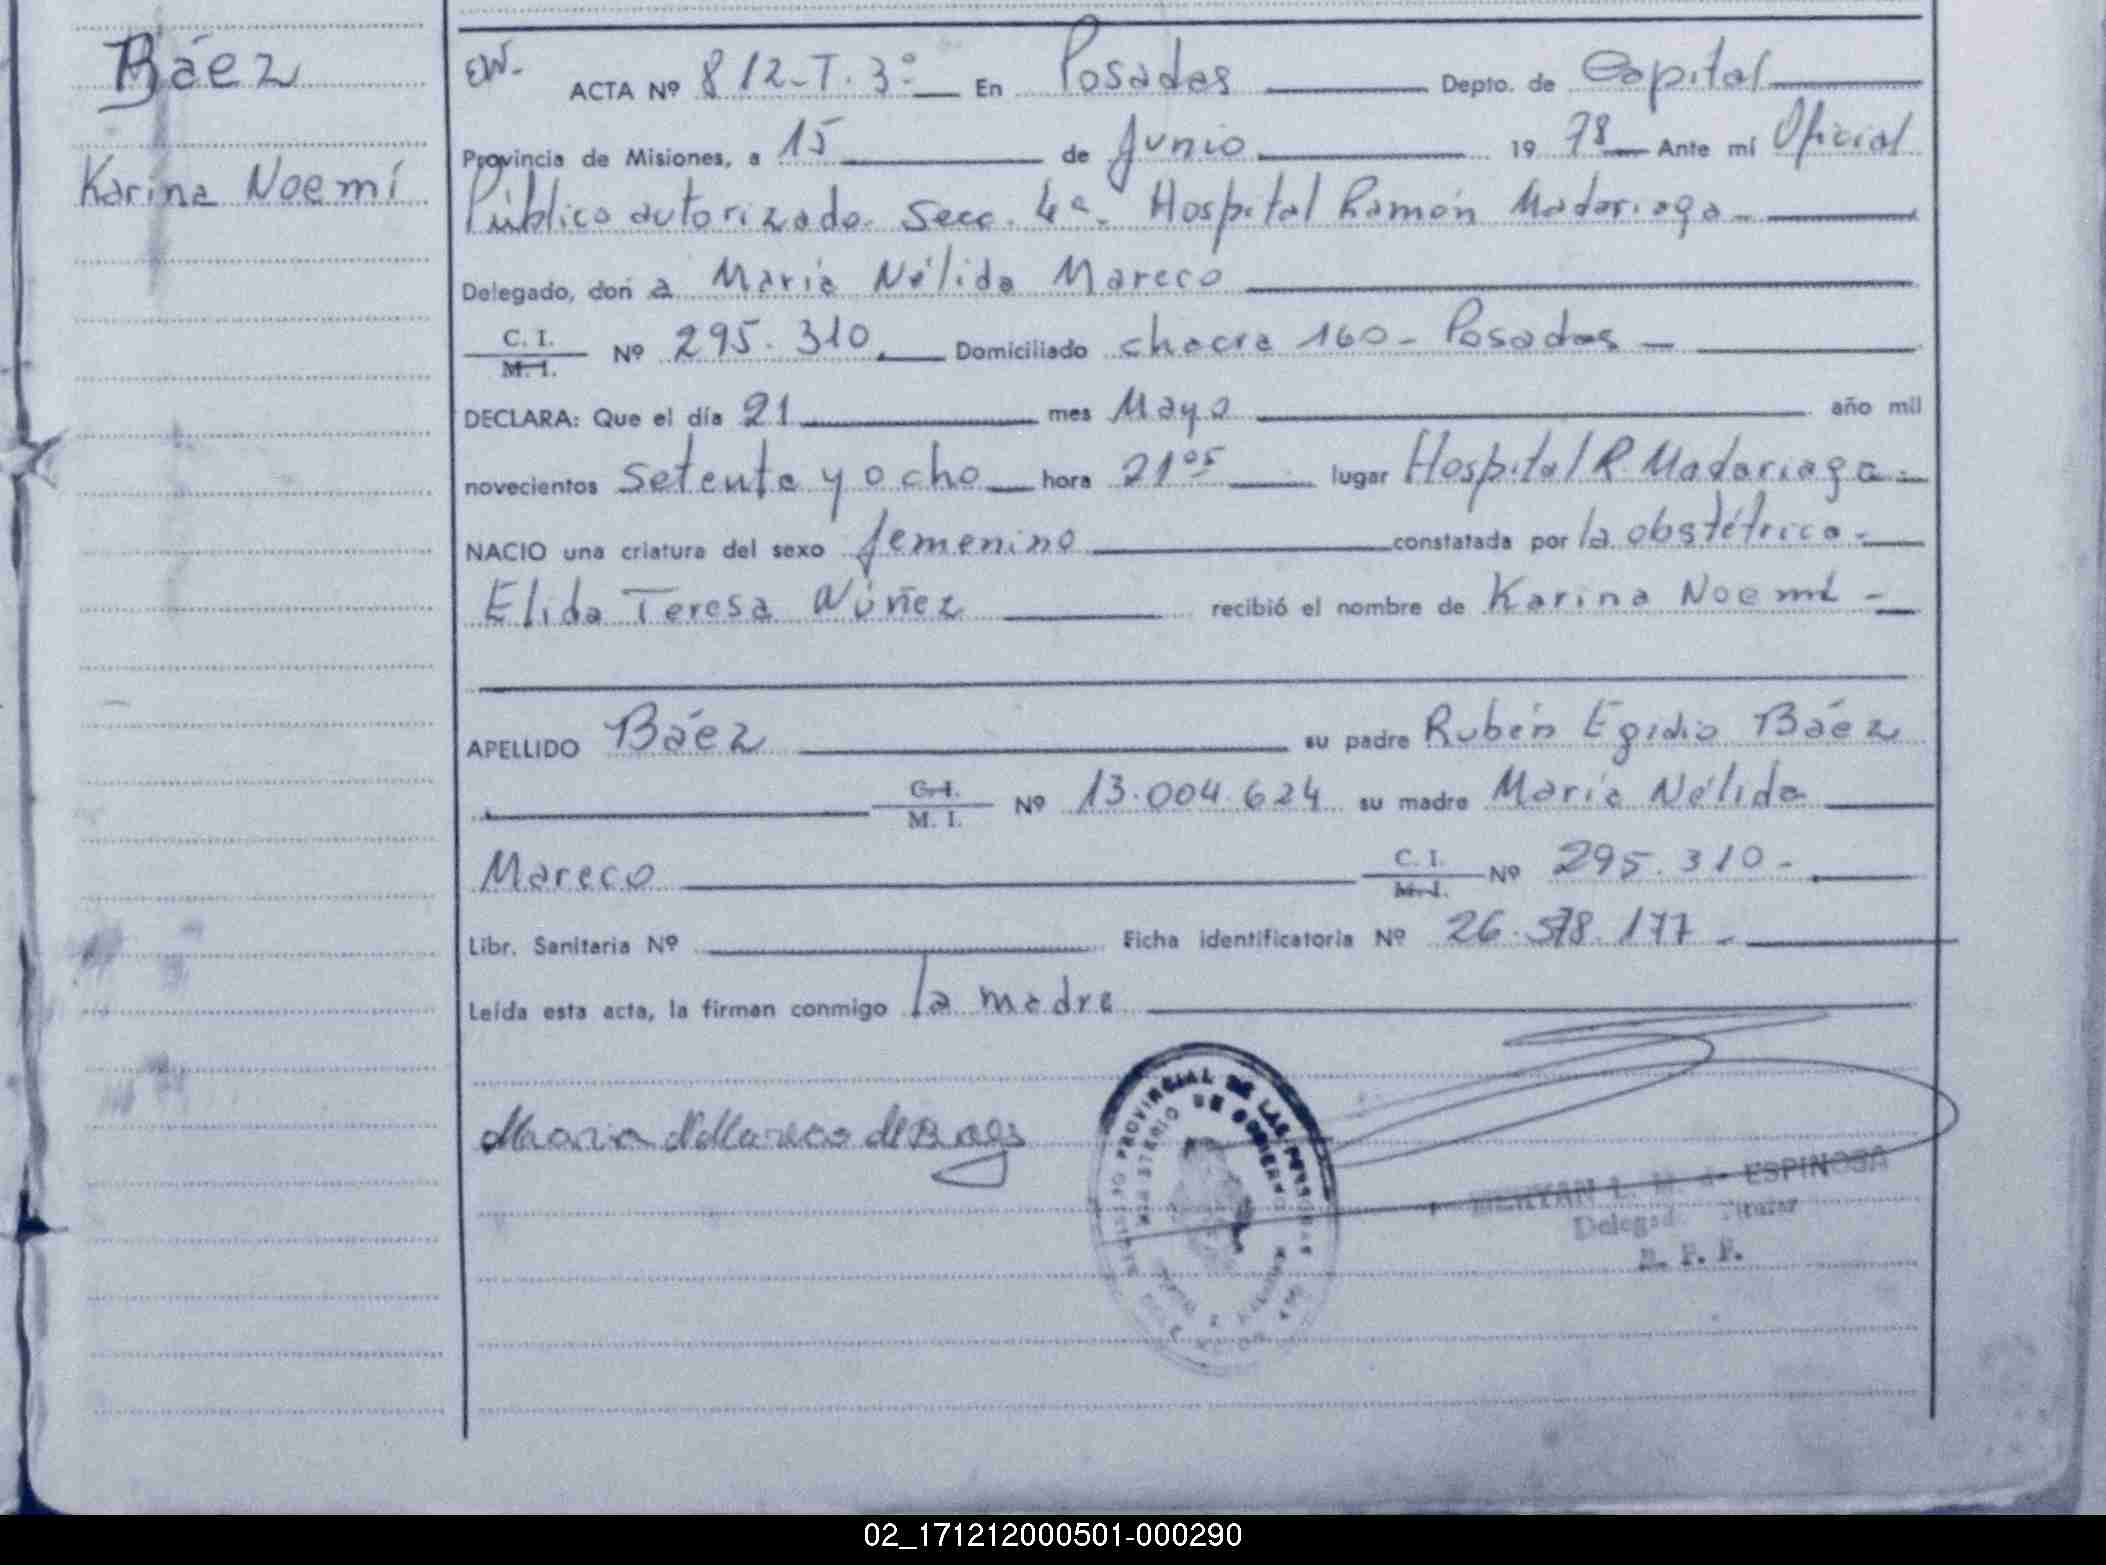 Báez
Karina Noemí
EW.
ACTA Nº 812-T.3º En Posadas Depto. de Capital
Provincia de Misiones, a 15 de Junio 1978 Ante mí Oficial
Público autorizado Secc. 4ª. Hospital Ramón Madariaga
Delegado, don a María Nélida Mareco
C. I.
M. I. Nº 295.310 Domiciliado chacra 160 - Posadas -
DECLARA: Que el día 21 mes Mayo año mil
novecientos setenta y ocho hora 21 05 lugar Hospital R. Madariaga -
NACIO una criatura del sexo femenino constatada por la obstétrica -
Elida Teresa Núñez recibió el nombre de Karina Noemí -
APELLIDO Báez su padre Rubén Egidio Báez
C. I.
M. I. Nº 13.004.624 su madre María Nélida
Mareco C. I.
M. I. Nº 295.310 -
Libr. Sanitaria Nº Ficha identificatoria Nº 26.578.177 -
Leída esta acta, la firman conmigo la madre
Maria N Mareco de Baez
PROVINCIAL DE LAS PERSONAS
MINISTERIO DE GOBIERNO
L. M. de ESPINOSA
Delegad. Titular
02_171212000501-000290